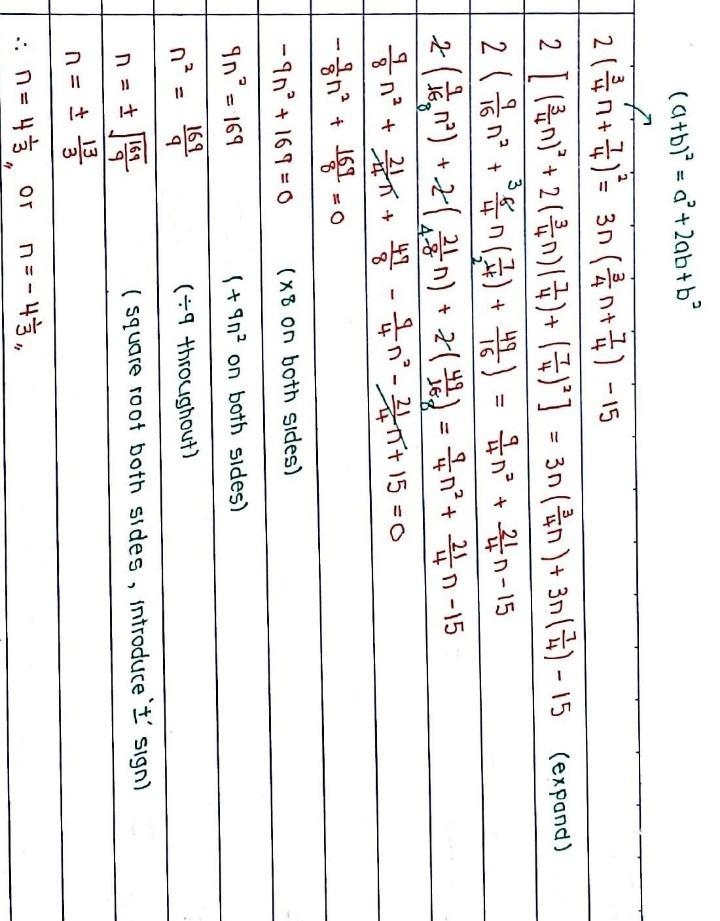 (a+b)² = a² + 2ab + b²
2(3/4 n + 7/4)² = 3n(3/4 n + 7/4) - 15
2[(3/4 n)² + 2(3/4 n)(7/4) + (7/4)²] = 3n(3/4 n) + 3n(7/4) - 15 (expand)
2(9/16 n² + 6/4 n(7/4) + 49/16) = 9/4 n² + 21/4 n - 15
2(9/16 n²) + 2(21/8 n) + 2(49/16) = 9/4 n² + 21/4 n - 15
9/8 n² + 21/4 n + 49/8 - 9/4 n² - 21/4 n + 15 = 0
-9/8 n² + 169/8 = 0
-9n² + 169 = 0 (×8 on both sides)
9n² = 169 (+9n² on both sides)
n² = 169/9 (÷9 throughout)
n = ± √(169/9) (square root both sides, introduce '±' sign)
n = ± 13/3
∴ n = 4 1/3 or n = -4 1/3